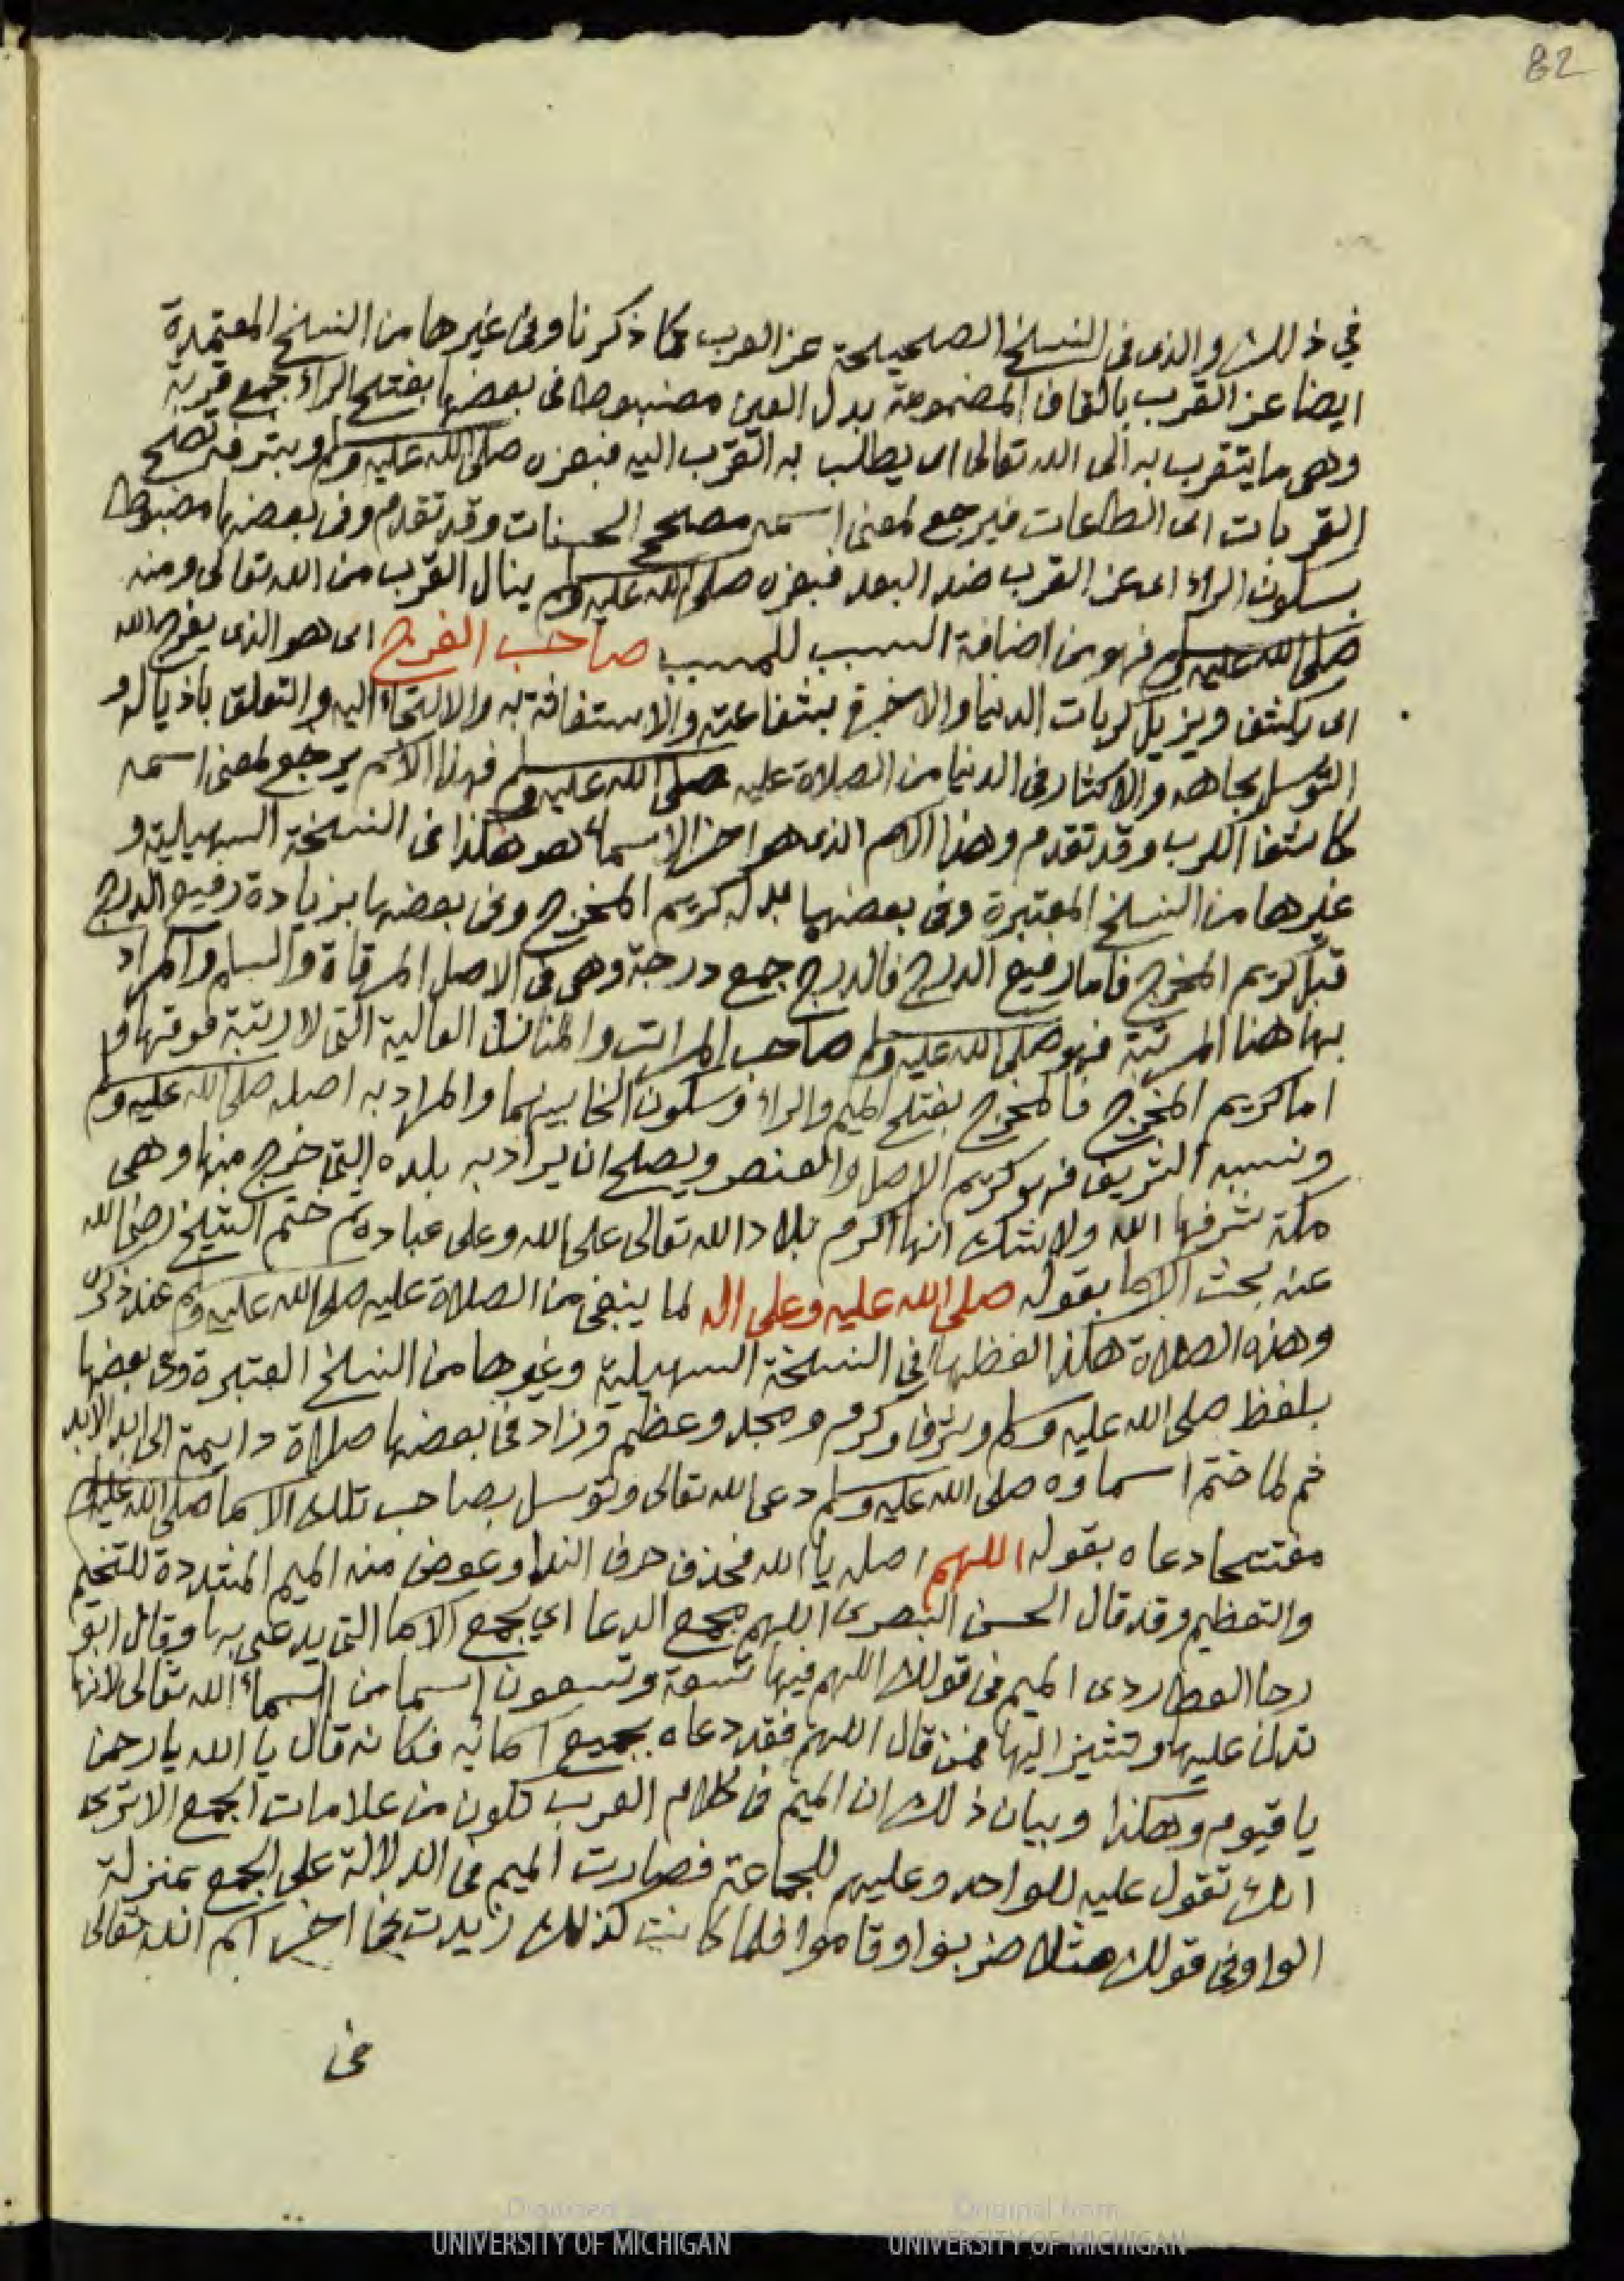 82
في ذلك والذى فى النسخ الصحيحة عز العرب كما ذكرنا وفى غيرها من النسخ المعتمدة
ايضا عز القرب بالقاف المضمومة بدل العين مضبوطا فى بعضها بفتح الراء جمع قربة
وهى ما يتقرب به الى الله تعالى اى يطلب به التقرب اليه فبعزه صلى الله عليه وسلم وبشرفه تصح
القربات اى الطاعات فيرجع لمعنى اسمه مصحح الحسنات وقد تقدم وفى بعضها مضبوطا
بسكون الراء اى عز القرب ضد البعد فبعزه صلى الله عليه وسلم ينال القرب من الله تعالى ومنه
صلى الله عليه وسلم فهو من اضافة السبب للمسبب صاحب الفرج اى هو الذى يفرج الله
اى يكشف ويزيل كربات الدنيا والاخرة بشفاعته والاستغاثة به والالتجاء اليه والتعلق باذياله و
التوسل بجاهه والاكثار فى الدنيا من الصلاة عليه صلى الله عليه وسلم فهذا الاسم يرجع لمعنى اسمه
كاشف الكرب وقد تقدم وهذا الاسم الذى هو اخر الاسماء هو هكذا فى النسخة السهيلية و
غيرها من النسخ المعتبرة وفى بعضها بدله كريم المخرج وفى بعضها بزيادة رفيع الدرج
قبل كريم المخرج فاما رفيع الدرج فالدرج جمع درجة وهى فى الاصل المرقاة والسلم والمراد
بها هنا المرتبة فهو صلى الله عليه وسلم صاحب المراتب والمنازل العالية التى لا رتبة فوقها و
اما كريم المخرج فالمخرج بفتح الميم والراء وسكون الخا بينهما والمراد به اصله صلى الله عليه وسلم
ونسبه الشريف فهو كريم الاصل والعنصر ويصلح ان يراد به بلده التى خرج منها وهى
مكة شرفها الله ولا شك انها اكرم بلاد الله تعالى على الله وعلى عباده ثم ختم الشيخ رضى الله
عنه بحث الاسما بقوله صلى الله عليه وعلى اله لما ينبغى من الصلاة عليه صلى الله عليه وسلم عند ذكره
وهذه الصلاة هكذا لفظها فى النسخة السهيلية وغيرها من النسخ المعتبرة وفى بعضها
بلفظ صلى الله عليه وسلم وشرف وكرم ومجد وعظم وزاد فى بعضها صلاة دايمة الى ابد الابد
ثم لما ختم اسماوه صلى الله عليه وسلم دعى الله تعالى وتوسل بصاحب تلك الاسما صلى الله عليه وسلم
مفتتحا دعاه بقوله اللهم اصله يا الله فحذف حرف الندا وعوض منه الميم المشددة للتفخيم
والتعظيم وقد قال الحسن البصرى اللهم مجمع الدعا اي لجمع الاسما التى يدعى بها وقال ابو
رجا العطاردى الميم فى قولك اللهم فيها تسعة وتسعون اسما من اسماء الله تعالى لانها
تدل عليها وتشير اليها فمن قال اللهم فقد دعاه بجميع اسمائه فكانه قال يا الله يا رحمن
يا قيوم وهكذا وبيان ذلك ان الميم فى كلام العرب تكون من علامات الجمع الا ترى
انك تقول عليه للواحد وعليهم للجماعة فصارت الميم فى الدلالة على الجمع بمنزلة
الواو فى قولك مثلا ضربوا وقاموا فلما كانت كذلك زيدت فى اخر اسم الله تعالى
فى
Digitized by
UNIVERSITY OF MICHIGAN
Original from
UNIVERSITY OF MICHIGAN